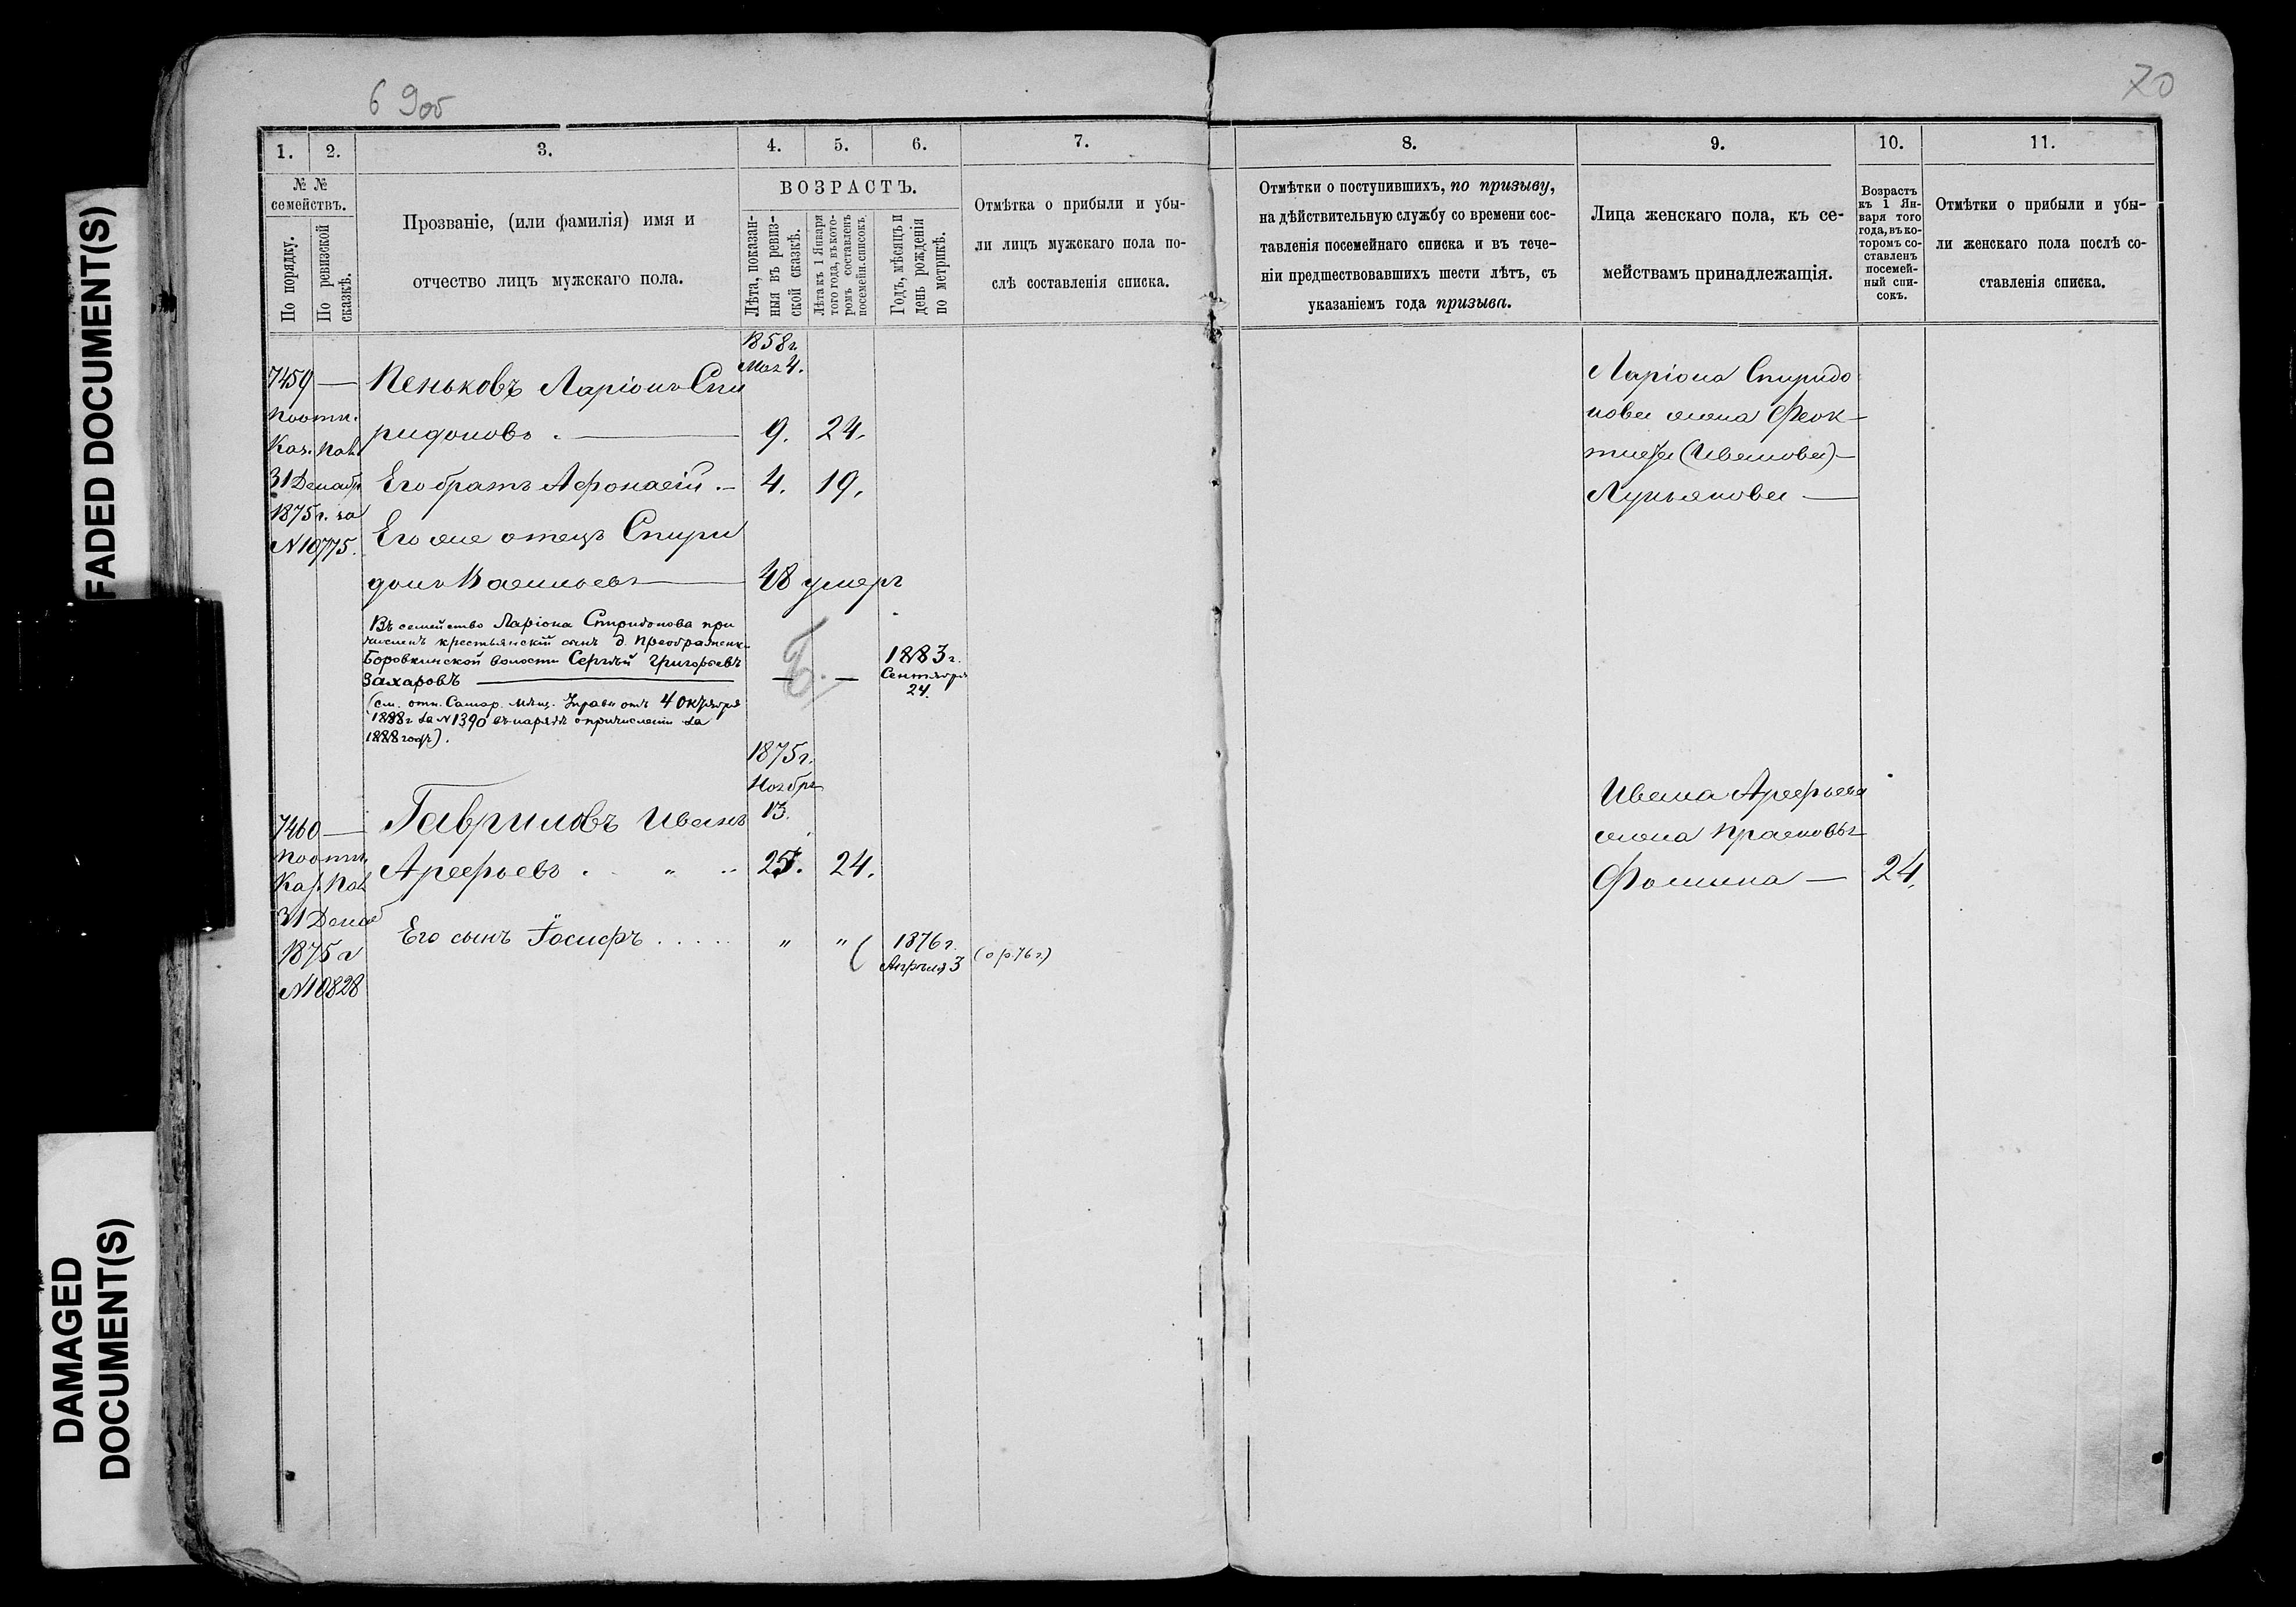 6 9об
70
FADED DOCUMENT(S)
DAMAGED
DOCUMENT(S)
1.
2.
3.
4.
5.
6.
7.
8.
9.
10.
11.
№ №
семействъ.
По порядку.
По ревизской
сказкѣ.
Прозваніе, (или фамилія) имя и
отчество лицъ мужскаго пола.
ВОЗРАСТЪ.
Лѣта, показан-
ныя въ ревиз-
ской сказкѣ.
Лѣта къ 1 Января
того года, въ кото-
ромъ составленъ
посемейн. списокъ.
Годъ, мѣсяцъ и
день рожденія
по метрикѣ.
Отмѣтка о прибыли и убы-
ли лицъ мужскаго пола по-
слѣ составленія списка.
Отмѣтки о поступившихъ, по призыву,
на дѣйствительную службу со времени сос-
тавленія посемейнаго списка и въ тече-
ніи предшествовавшихъ шести лѣтъ, съ
указаніемъ года призыва.
Лица женскаго пола, къ се-
мействамъ принадлежащія.
Возрастъ
къ 1 Ян-
варя того
года, въ ко-
торомъ со-
ставленъ
посемей-
ный спи-
сокъ.
Отмѣтки о прибыли и убы-
ли женскаго пола послѣ со-
ставленія списка.
7459 —
По отн.
Каз. Пал.
31 Декабр
1875 г. за
№ 10775.
1858 г.
Мая 4.
Пеньковъ Ларіонъ Спи
ридоновъ . — 9. 24.
Его братъ Афонасій . — 4. 19.
Его же отецъ Спири
донъ Васильевъ — 48 умеръ
Въ семейство Ларіона Спиридонова при
численъ крестьянскій сынъ д. Преображенк
Боровкинской волости Сергѣй Григорьевъ
Захаровъ — — —
1883 г.
Сентября
24.
(см. отн. Самар. Мѣщ. Управы отъ 4 октября
1888 г за № 1390 въ нарядѣ о причисленіи за
1888 годъ).
Ларіона Спиридо
нова жена Феок-
тиста (Иванова) —
Лукьянова —
7460 —
По отн.
Каз. Пал
31 Декаб
1875 г
№ 10828
1875 г.
Ноября
13.
Гавриловъ Иванъ
Арефьевъ . „ .. 25. 24.
Его сынъ Іосифъ . . . . . „ „
1876 г.
Апрѣля 3
(о р. 76 г)
Ивана Арефьева
жена Прасковья
Фомина — 24.